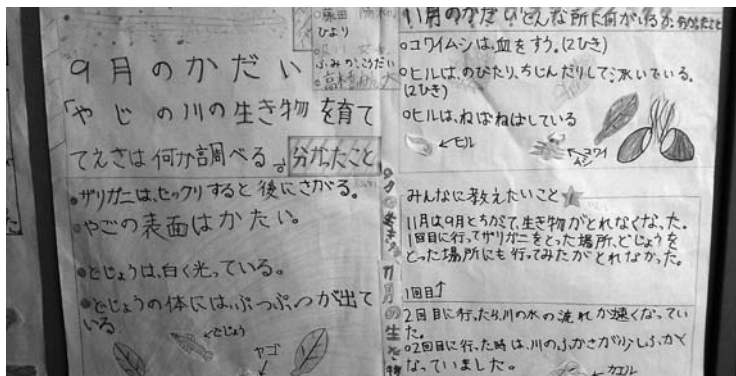 9月のかだい
「やじの川の生き物を育て
てえさは何か調べる。分かったこと
・ザリガニは、ビックリすると後にさがる。
・やごの表面はかたい。
・どじょうは、白く光っている。
・どじょうの体には、ぶつぶつが出て
いる
←どじょう
ヤゴ
ひより
11月のかだい どんな所に何がいるか
分かったこと
○コワイムシは、血をすう。(2ひき)
○ヒルは、のびたり、ちぢんだりして泳いでいる。
(2ひき)
○ヒルは、ねばねばしている
←ヒル
みんなに教えたいこと
11月は9月とちがって、生き物がとれなくなった。
1回目に行ってザリガニをとった場所、どじょうを
とった場所にも行ってみたがとれなかった。
1回目↑
2回目に行ったら、川の水の流れが速くなってい
た。
○2回目に行った時は、川のふかさが少しふかく
なっていました。
カエル
11月の生き物